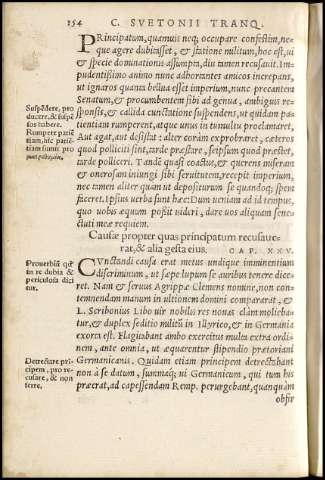 154 C. SVETONII TRANQ.
PRincipatum, quamuis neq; occupare confestim, ne-
que agere dubitasset, & statione militum, hoc est, ui
& specie dominationis assumpta, diu tamen recusauit. Im-
pudentissimo animo nunc adhortantes amicos increpans,
ut ignaros quanta bellua esset imperium, nunc precantem
Senatum, & procumbentem sibi ad genua, ambiguis re-
sponsis, & callida cunctatione suspendens, ut quidam pa-
tientiam rumperent, atque unus in tumultu proclamaret,
Aut agat, aut desistat: alter coràm exprobraret, cæteros
quod polliciti sint, tardè præstare, se ipsum quod præstet,
tardè polliceri. Tandē quasi coactus, & querens miseram
& onerosam iniungi sibi seruitutem, recepit imperium,
nec tamen aliter quàm ut depositurum se quandoq; spem
faceret. Ipsius uerba sunt hæc: Dum ueniam ad id tempus,
quo uobis æquum possit uideri, dare uos aliquam sene-
ctuti meæ requiem.
Suspensere, pro
ducere, & suspē
sos habere.
Rumpere patiē
tiam, hoc patiē-
Causæ propter quas principatum recusaue-
rat, & alia gesta eius. CAP. XXV.
CVnctandi causa erat metus undique imminentium
discriminum, ut sæpe lupum se auribus tenere dice-
ret. Nam & seruus Agrippæ Clemens nomine, non con-
temnendam manum in ultionem domini compararat, &
L. Scribonius Libo uir nobilis res nouas clàm molieba-
tur, & duplex seditio militū in Illyrico, & in Germania
exorta est. Flagitabant ambo exercitus multa extra ordi-
nem, ante omnia, ut æquarentur stipendio prætoriani
Germanicani. Quidam etiam principem detrectabant
non à se datum, summaq; ui Germanicum, qui tum his
præerat, ad capessendam Remp. perurgebant, quanquàm
obfir
Prouerbiū qđ
in re dubia &
periculosa dici
tur.
Detrectare prī-
cipem, pro re-
cusare, & non
ferre.